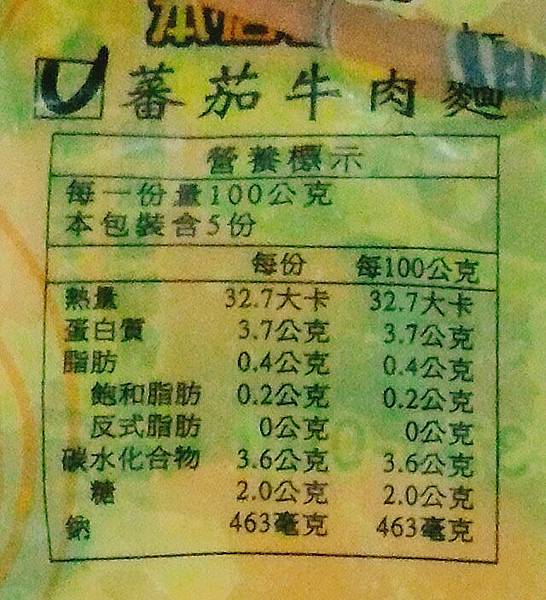 蕃茄牛肉麵
營養標示
每一份量100公克
本包裝含5份
每份 每100公克
熱量 32.7大卡 32.7大卡
蛋白質 3.7公克 3.7公克
脂肪 0.4公克 0.4公克
飽和脂肪 0.2公克 0.2公克
反式脂肪 0公克 0公克
碳水化合物 3.6公克 3.6公克
糖 2.0公克 2.0公克
鈉 463毫克 463毫克